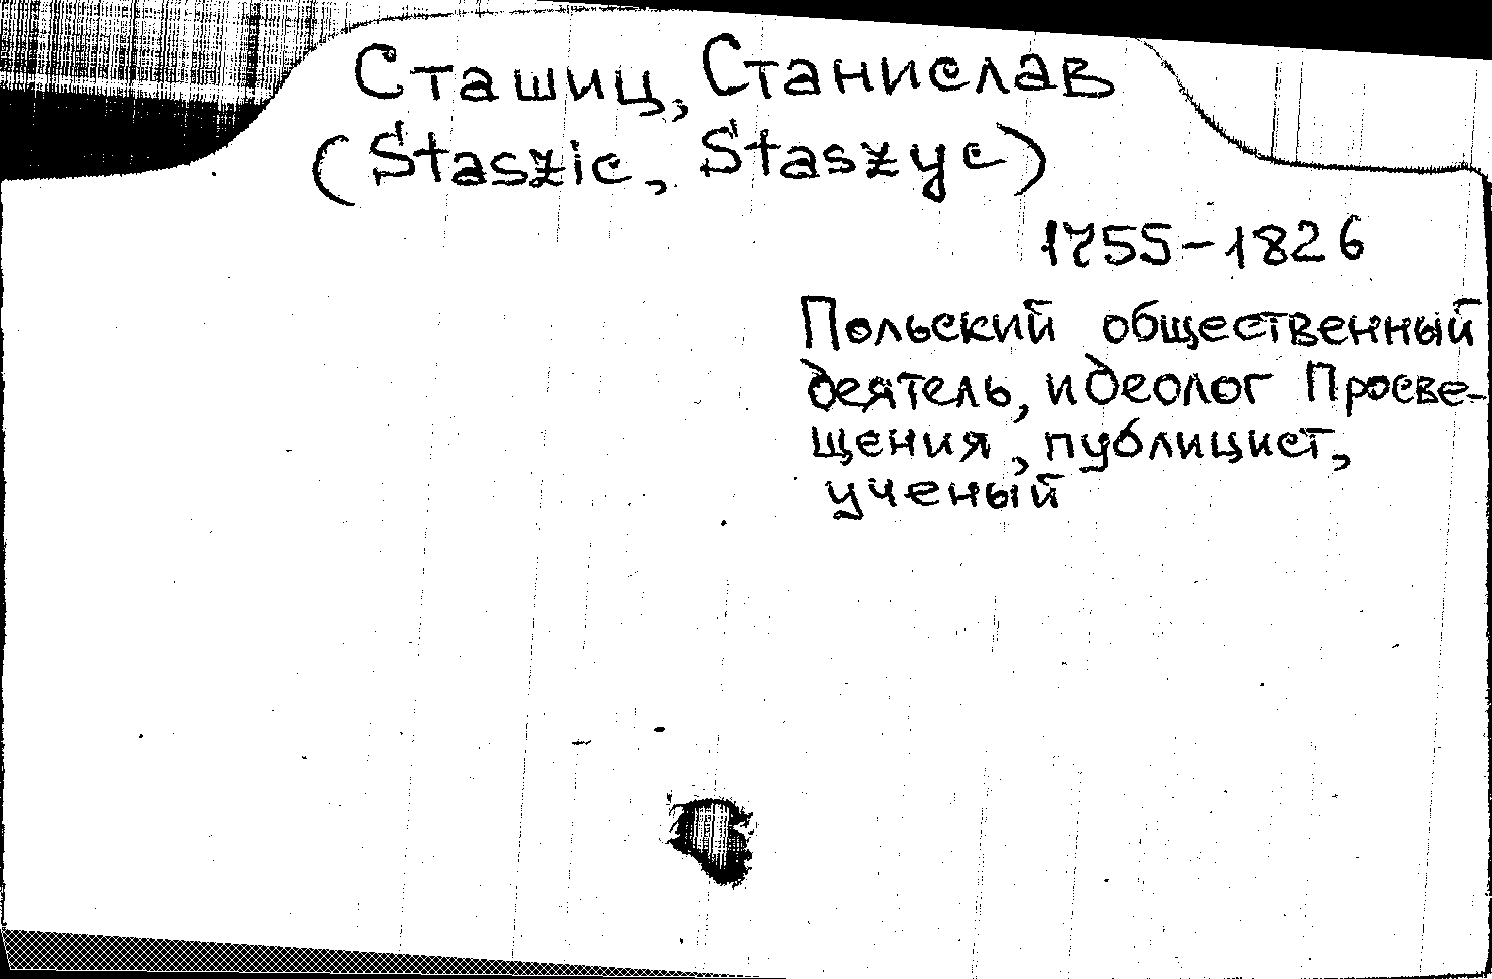 Сташиц, Станислав
(Staszic, Staszyc)
1755-1826
Польский общественный
деятель, идеолог Просве-
щения, публицист,
ученый